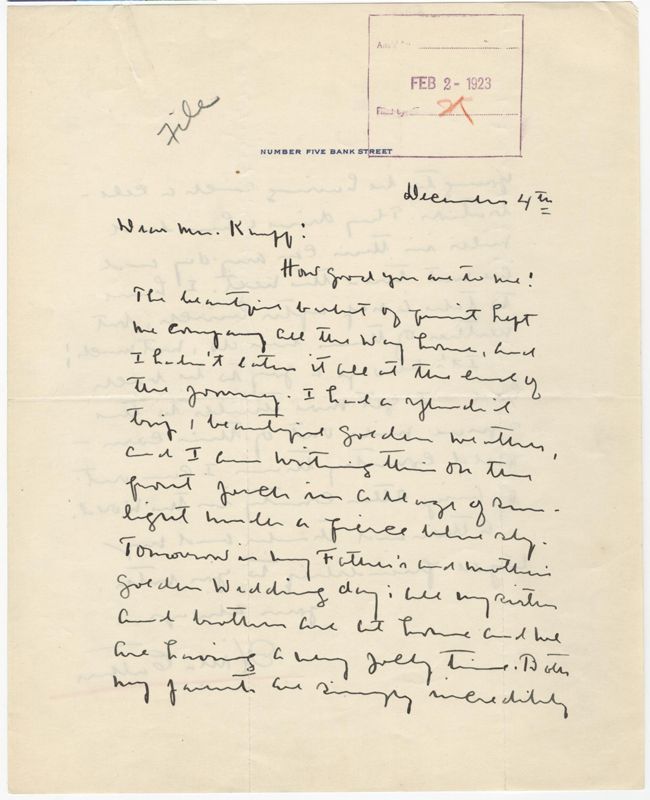 File
FEB 2 - 1923
NUMBER FIVE BANK STREET
December 4th
Dear Mr. Knopf:
How good you are to me!
The beautiful basket of fruit kept
me company all the way home, and
I hadn't eaten it all at the end of
the journey. I had a splendid
trip, beautiful golden weather,
and I am writing this on the
front porch in a blaze of sun-
light under a fierce blue sky.
Tomorrow is my Father's and mother's
golden wedding day; all my sisters
and brothers are at home and we
are having a very jolly time. Both
my parents are simply incredibly